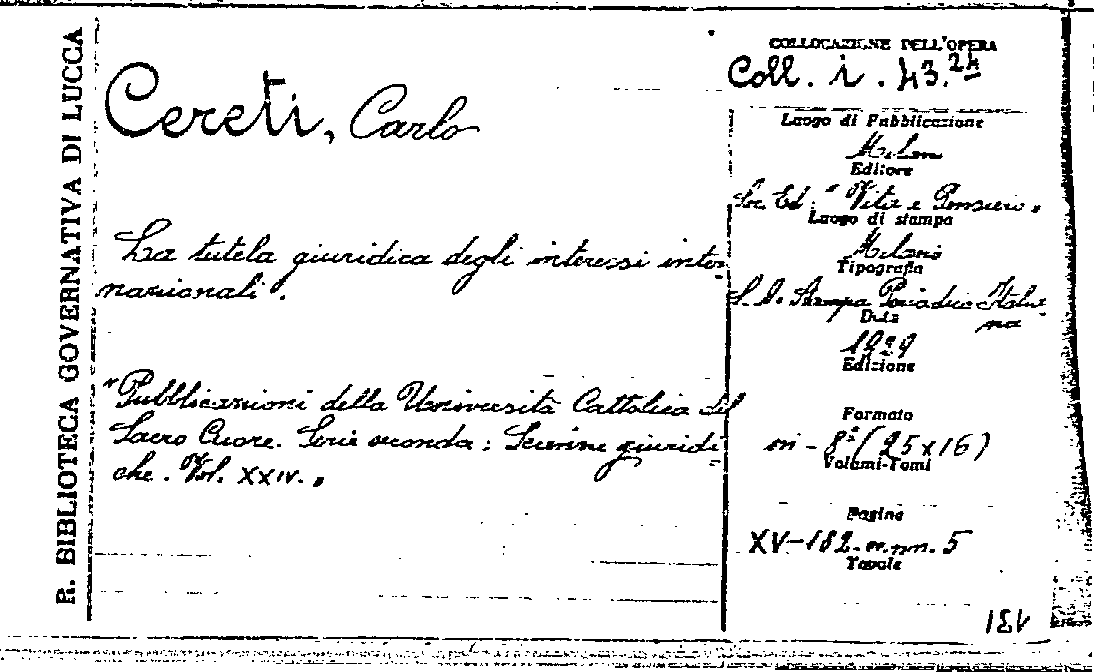 R. BIBLIOTECA GOVERNATIVA DI LUCCA
Cereti, Carlo
La tutela giuridica degli interessi inter-
nazionali.
"Pubblicazioni della Università Cattolica del
Sacro Cuore. Serie seconda: Scienze giuridi-
che. Vol. XXIV.„
COLLOCAZIONE DELL'OPERA
Coll. i. 43.24
Luogo di Pubblicazione
Milano
Editore
Soc. Ed. "Vita e Pensiero„
Luogo di stampa
Milano
Tipografia
S. A. Stampa Periodica Italia-
na
Data
1929
Edizione
Formato
in-8° (25x16)
Volumi-Tomi
Pagine
XV-182. 5
Tavole